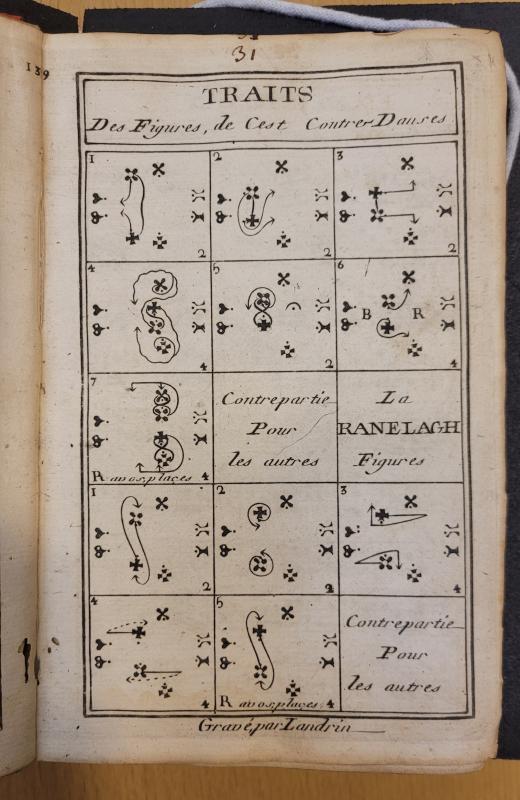 31
139
TRAITS
Des Figures, de Cest Contrer Danses
1
2
2
2
3
2
4
4
5
2
6
B R
4
7
R avos places 4
Contrepartie
Pour
les autres
La
RANELAGH
Figures
1
2
2
4
3
4
4
4
5
R avos places 4
Contrepartie
Pour
les autres
Gravé par Landrin